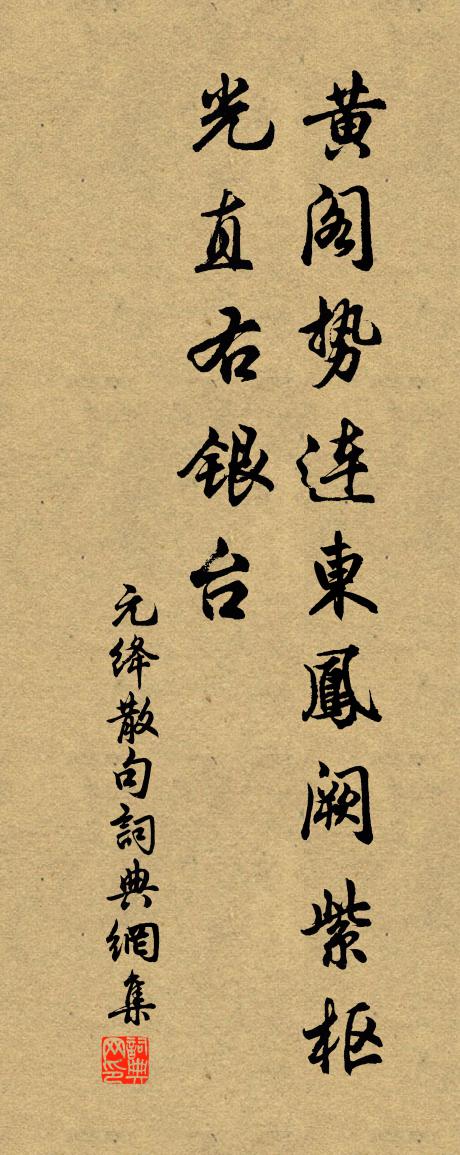 黄阁势連東鳳阙紫枢
光直右銀台
元绛散句詞典網集
詞典网印